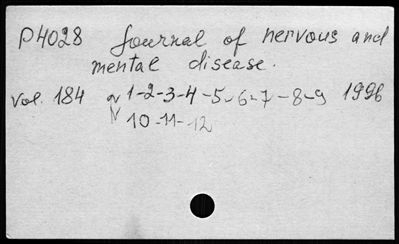 P4028 Journal of nervous and
mental disease.
vol. 184 N 1-2-3-4-5-6-7-8-9 1996
10-11-12